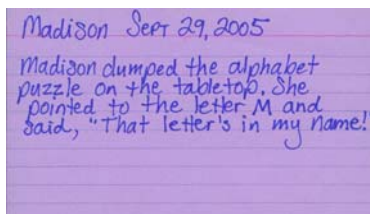 Madison Sept 29, 2005
Madison dumped the alphabet
puzzle on the tabletop. She
pointed to the letter M and
said, "That letter's in my name!